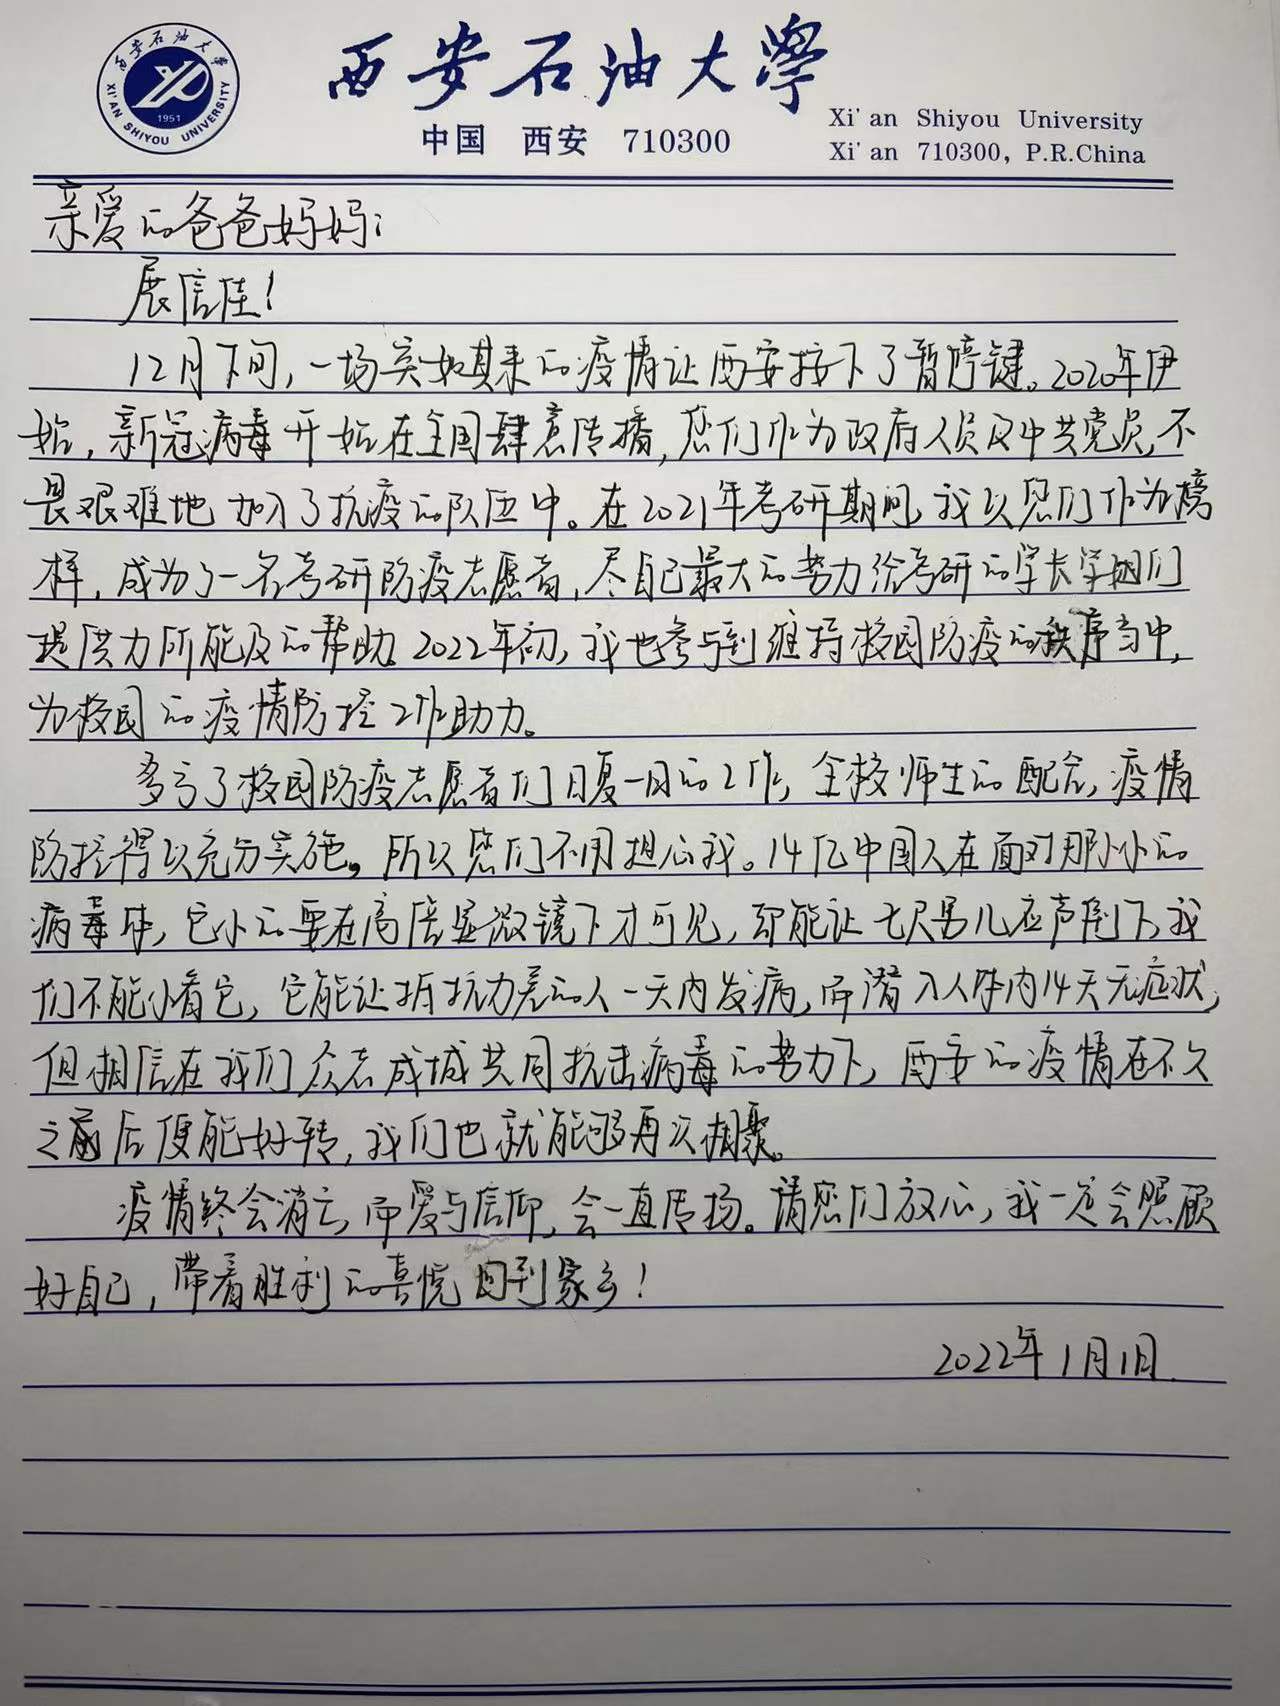 西安石油大學
中国 西安 710300
Xi'an Shiyou University
Xi'an 710300, P.R.China
西安石油大学
XI'AN SHIYOU UNIVERSITY
1951
亲爱的爸爸妈妈：
展信佳！
12月下旬，一场突如其来的疫情让西安按下了暂停键。2020年伊
始，新冠病毒开始在全国肆意传播，您们作为政府人员及中共党员，不
畏艰难地加入了抗疫的队伍中。在2021年考研期间，我以您们作为榜
样，成为了一名考研防疫志愿者，尽自己最大的努力给考研的学长学姐们
提供力所能及的帮助。2022年初，我也参与到维持校园防疫的秩序当中，
为校园的疫情防控工作助力。
多亏了校园防疫志愿者们日复一日的工作，全校师生的配合，疫情
防控得以充分实施。所以您们不用担心我。14亿中国人在面对那小小的
病毒体，它小的要在高倍显微镜下才可见，却能让七尺男儿应声倒下，我
们不能小看它，它能让抵抗力差的人一天内发病，而潜入人体内14天无症状，
但相信在我们众志成城共同抗击病毒的努力下，西安的疫情在不久
之前后便能好转，我们也就能够再次相聚。
疫情终会消亡，而爱与信仰，会一直传扬。请您们放心，我一定会照顾
好自己，带着胜利的喜悦回到家乡！
2022年1月1日